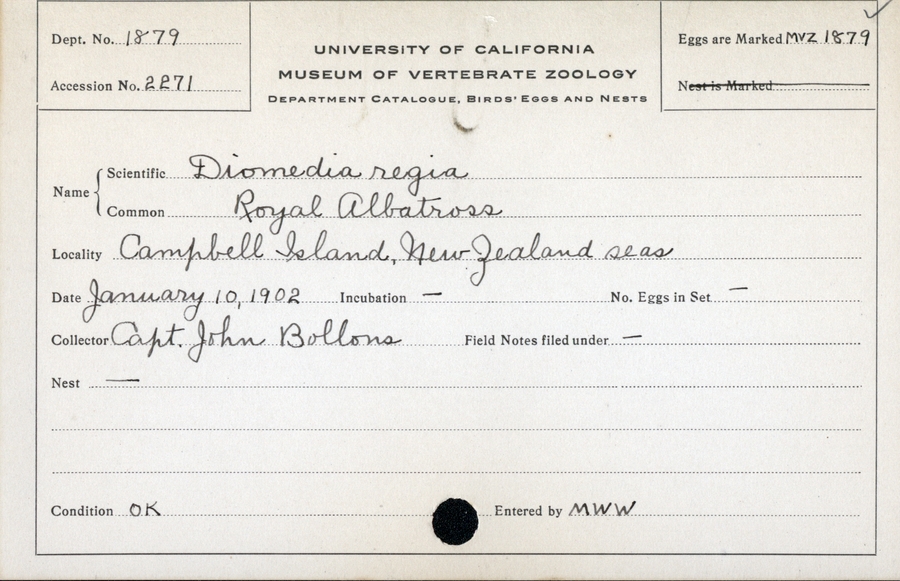 Dept. No. 1879
Accession No. 2271
UNIVERSITY OF CALIFORNIA
MUSEUM OF VERTEBRATE ZOOLOGY
DEPARTMENT CATALOGUE, BIRDS' EGGS AND NESTS
Eggs are Marked MVZ 1879
Nest is Marked
Name { Scientific Diomedia regia
Common Royal Albatross
Locality Campbell Island, New Zealand seas
Date January 10, 1902 Incubation — No. Eggs in Set —
Collector Capt. John Bollons Field Notes filed under —
Nest —
Condition OK Entered by MWW